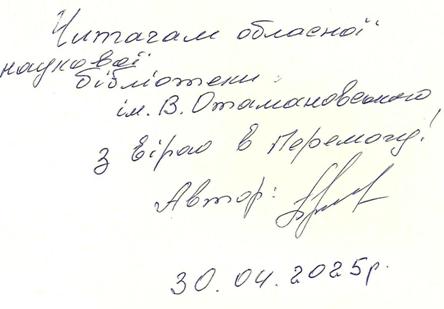 Читачам обласної
наукової
бібліотеки
ім. В. Отамановського
з вірою в Перемогу!
Автор:
30.04.2025р.